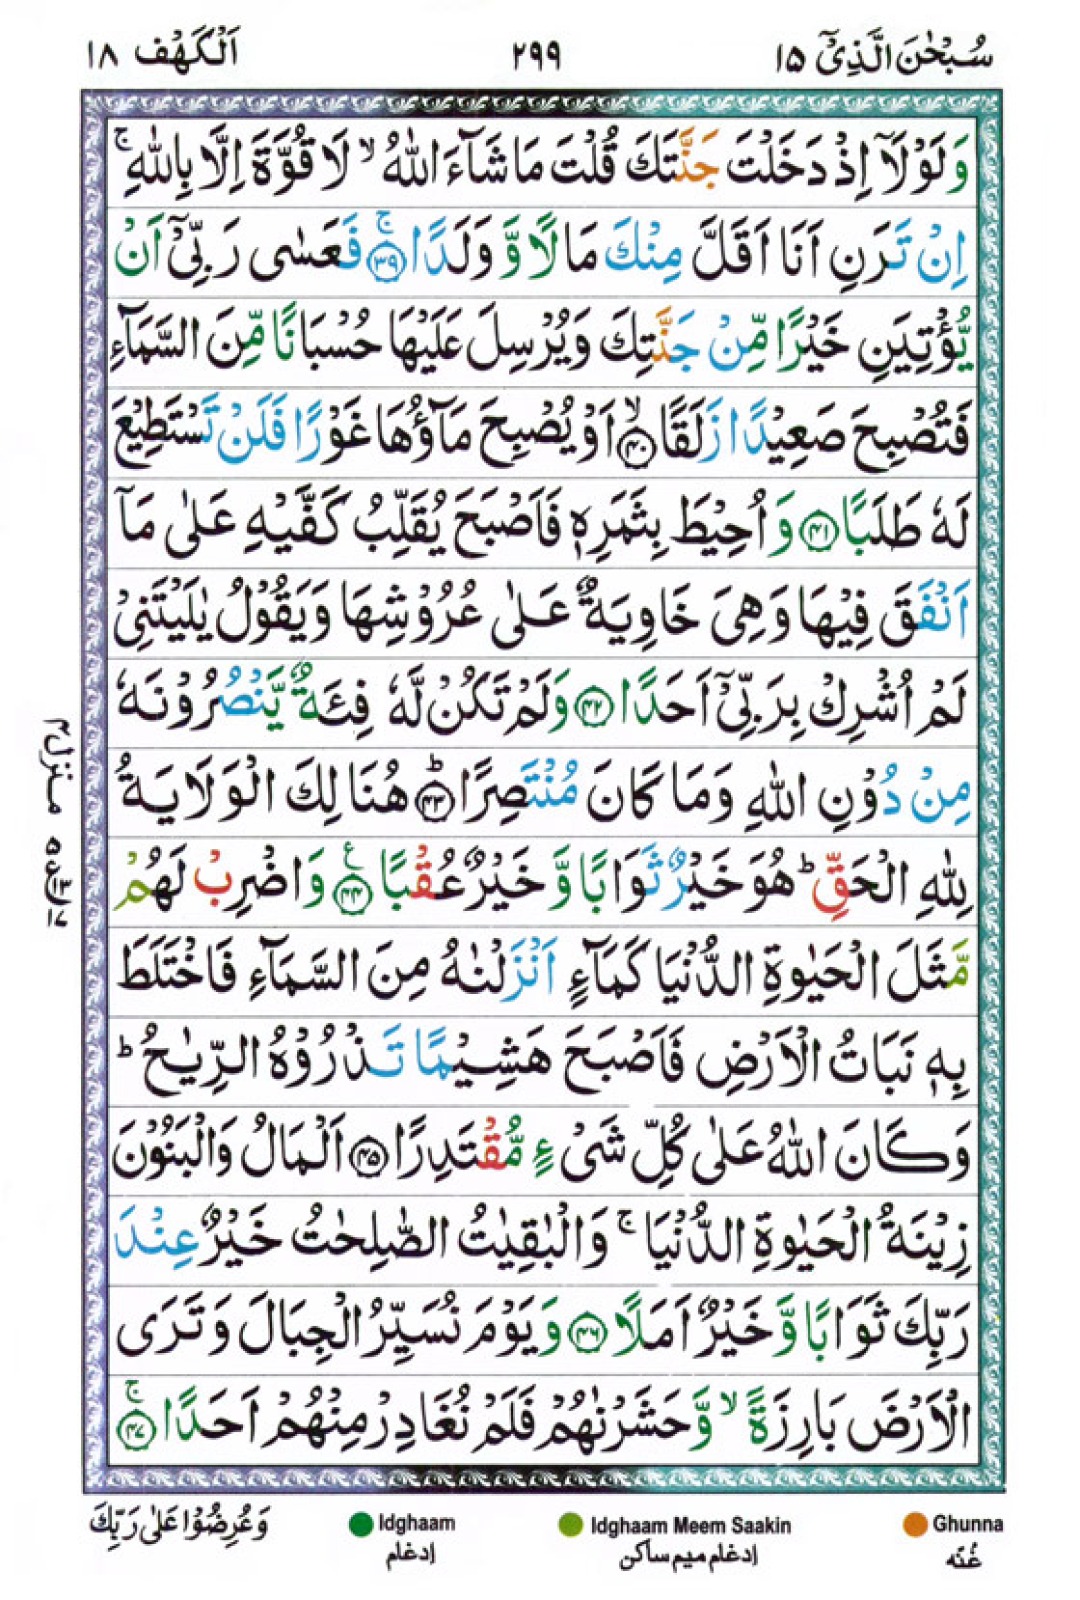 سُبْحٰنَ الَّذِیْۤ ١٥ ٢٩٩ اَلْكَهْف ١٨
وَلَوْلَاۤ اِذْ دَخَلْتَ جَنَّتَكَ قُلْتَ مَا شَآءَ اللّٰهُ ۙ لَا قُوَّةَ اِلَّا بِاللّٰهِ ۚ
اِنْ تَرَنِ اَنَا اَقَلَّ مِنْكَ مَالًا وَّ وَلَدًا ۚ ﴿٣٩﴾ فَعَسٰی رَبِّیْۤ اَنْ
یُّؤْتِیَنِ خَیْرًا مِّنْ جَنَّتِكَ وَیُرْسِلَ عَلَیْهَا حُسْبَانًا مِّنَ السَّمَآءِ
فَتُصْبِحَ صَعِیْدًا زَلَقًا ۙ ﴿٤٠﴾ اَوْ یُصْبِحَ مَآؤُهَا غَوْرًا فَلَنْ تَسْتَطِیْعَ
لَهٗ طَلَبًا ﴿٤١﴾ وَ اُحِیْطَ بِثَمَرِهٖ فَاَصْبَحَ یُقَلِّبُ كَفَّیْهِ عَلٰی مَاۤ
اَنْفَقَ فِیْهَا وَهِیَ خَاوِیَةٌ عَلٰی عُرُوْشِهَا وَیَقُوْلُ یٰلَیْتَنِیْ
لَمْ اُشْرِكْ بِرَبِّیْۤ اَحَدًا ﴿٤٢﴾ وَلَمْ تَكُنْ لَّهٗ فِئَةٌ یَّنْصُرُوْنَهٗ
مِنْ دُوْنِ اللّٰهِ وَمَا كَانَ مُنْتَصِرًا ؕ ﴿٤٣﴾ هُنَالِكَ الْوَلَایَةُ
لِلّٰهِ الْحَقِّ ؕ هُوَ خَیْرٌ ثَوَابًا وَّ خَیْرٌ عُقْبًا ۧ ﴿٤٤﴾ وَاضْرِبْ لَهُمْ
مَّثَلَ الْحَیٰوةِ الدُّنْیَا كَمَآءٍ اَنْزَلْنٰهُ مِنَ السَّمَآءِ فَاخْتَلَطَ
بِهٖ نَبَاتُ الْاَرْضِ فَاَصْبَحَ هَشِیْمًا تَذْرُوْهُ الرِّیٰحُ ؕ
وَكَانَ اللّٰهُ عَلٰی كُلِّ شَیْءٍ مُّقْتَدِرًا ﴿٤٥﴾ اَلْمَالُ وَالْبَنُوْنَ
زِیْنَةُ الْحَیٰوةِ الدُّنْیَا ۚ وَالْبٰقِیٰتُ الصّٰلِحٰتُ خَیْرٌ عِنْدَ
رَبِّكَ ثَوَابًا وَّ خَیْرٌ اَمَلًا ﴿٤٦﴾ وَیَوْمَ نُسَیِّرُ الْجِبَالَ وَ تَرَی
الْاَرْضَ بَارِزَةً ۙ وَّ حَشَرْنٰهُمْ فَلَمْ نُغَادِرْ مِنْهُمْ اَحَدًا ۚ ﴿٤٧﴾
منزل ٤
وَعُرِضُوْا عَلٰی رَبِّكَ
Idghaam Idghaam Meem Saakin Ghunna
ادغام ادغام میم ساکن غُنّه